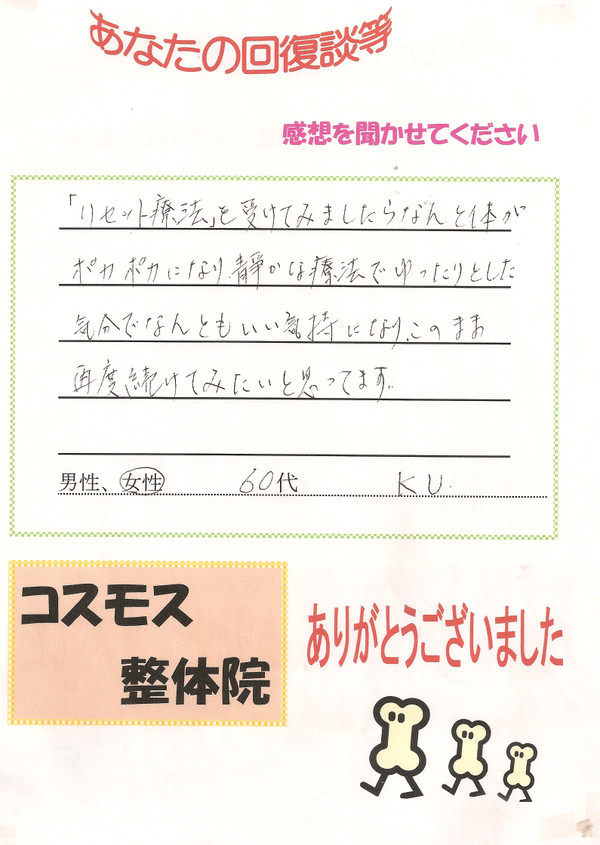 あなたの回復談等
感想を聞かせてください
「リセット療法」を受けてみましたらなんと体が
ポカポカになり、静かな療法でゆったりとした
気分でなんともいい気持になり、このまま
再度続けてみたいと思ってます。
男性、女性 60代 K U.
コスモス
整体院
ありがとうございました